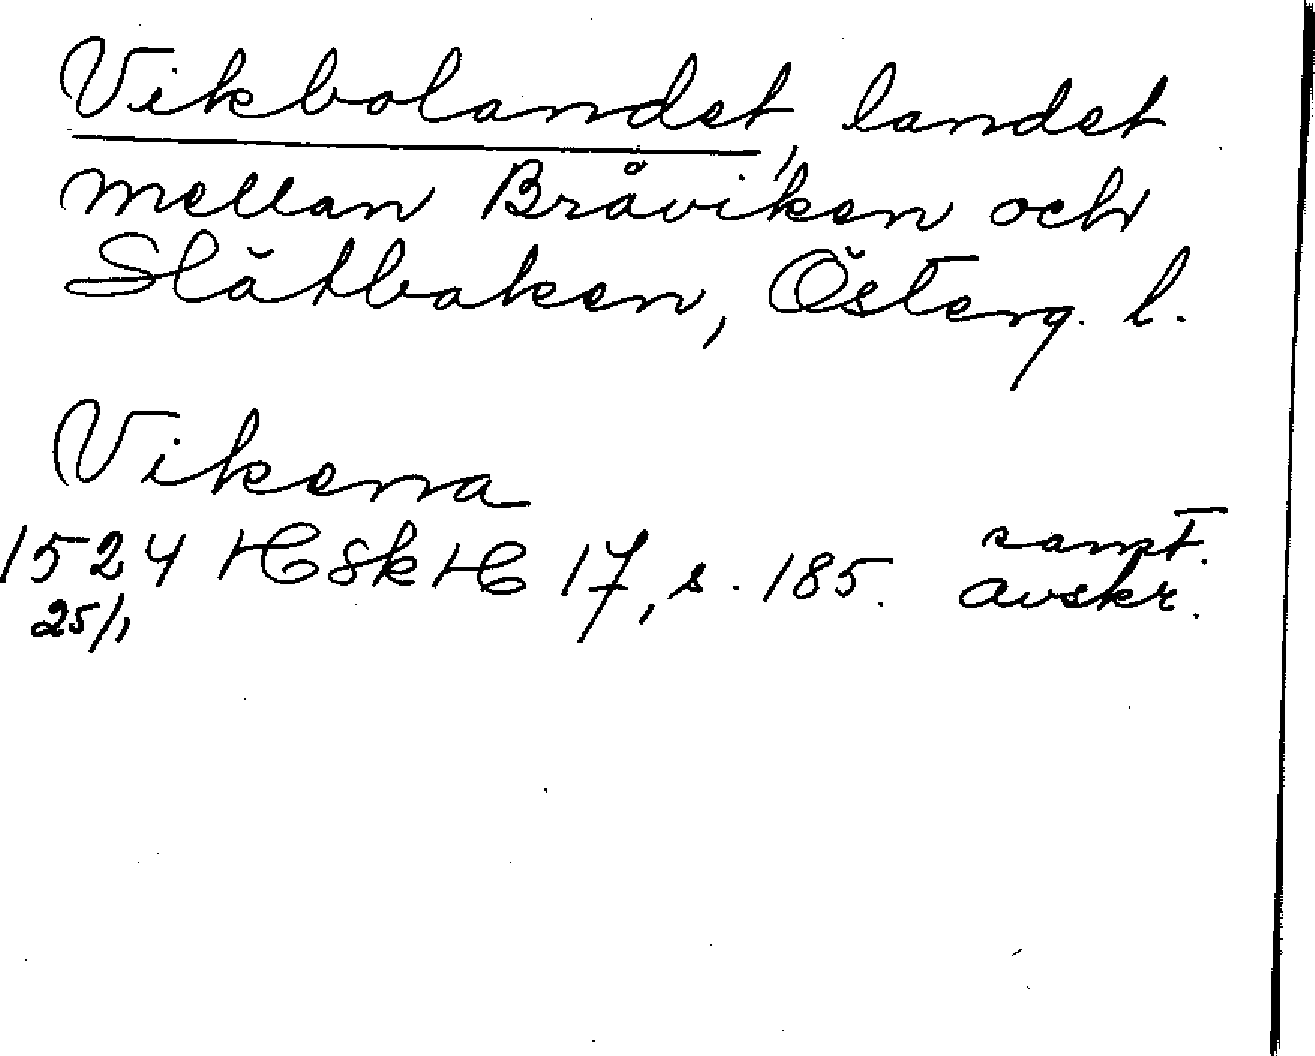 Vikbolandet, landet
mellan Bråviken och
Slätbaken, Österg. l.
Vikenna
1524 HSkH 17, s. 185. samt.
avskr.
25/1